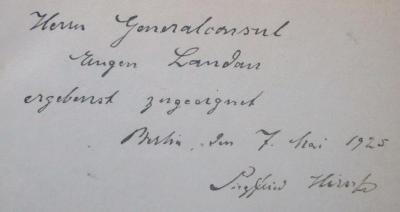 Herrn Generalconsul
Eugen Landau
ergebenst zugeeignet
Berlin, den 7. Mai 1925
Siegfried